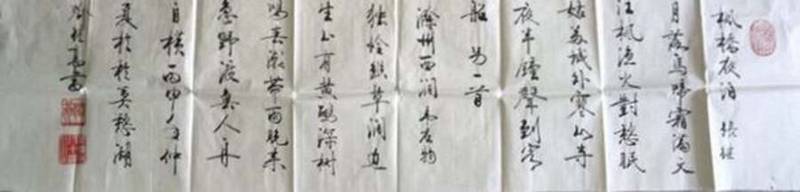 楓橋夜泊 張继
月落烏啼霜滿天
江楓漁火對愁眠
姑蘇城外寒山寺
夜半鐘聲到客
船 另一首
滁州西澗 韋應物
獨憐幽草澗邊
生上有黄鸝深樹
鳴春潮帶雨晚來
急野渡無人舟
自横 丙申年仲
夏於
書